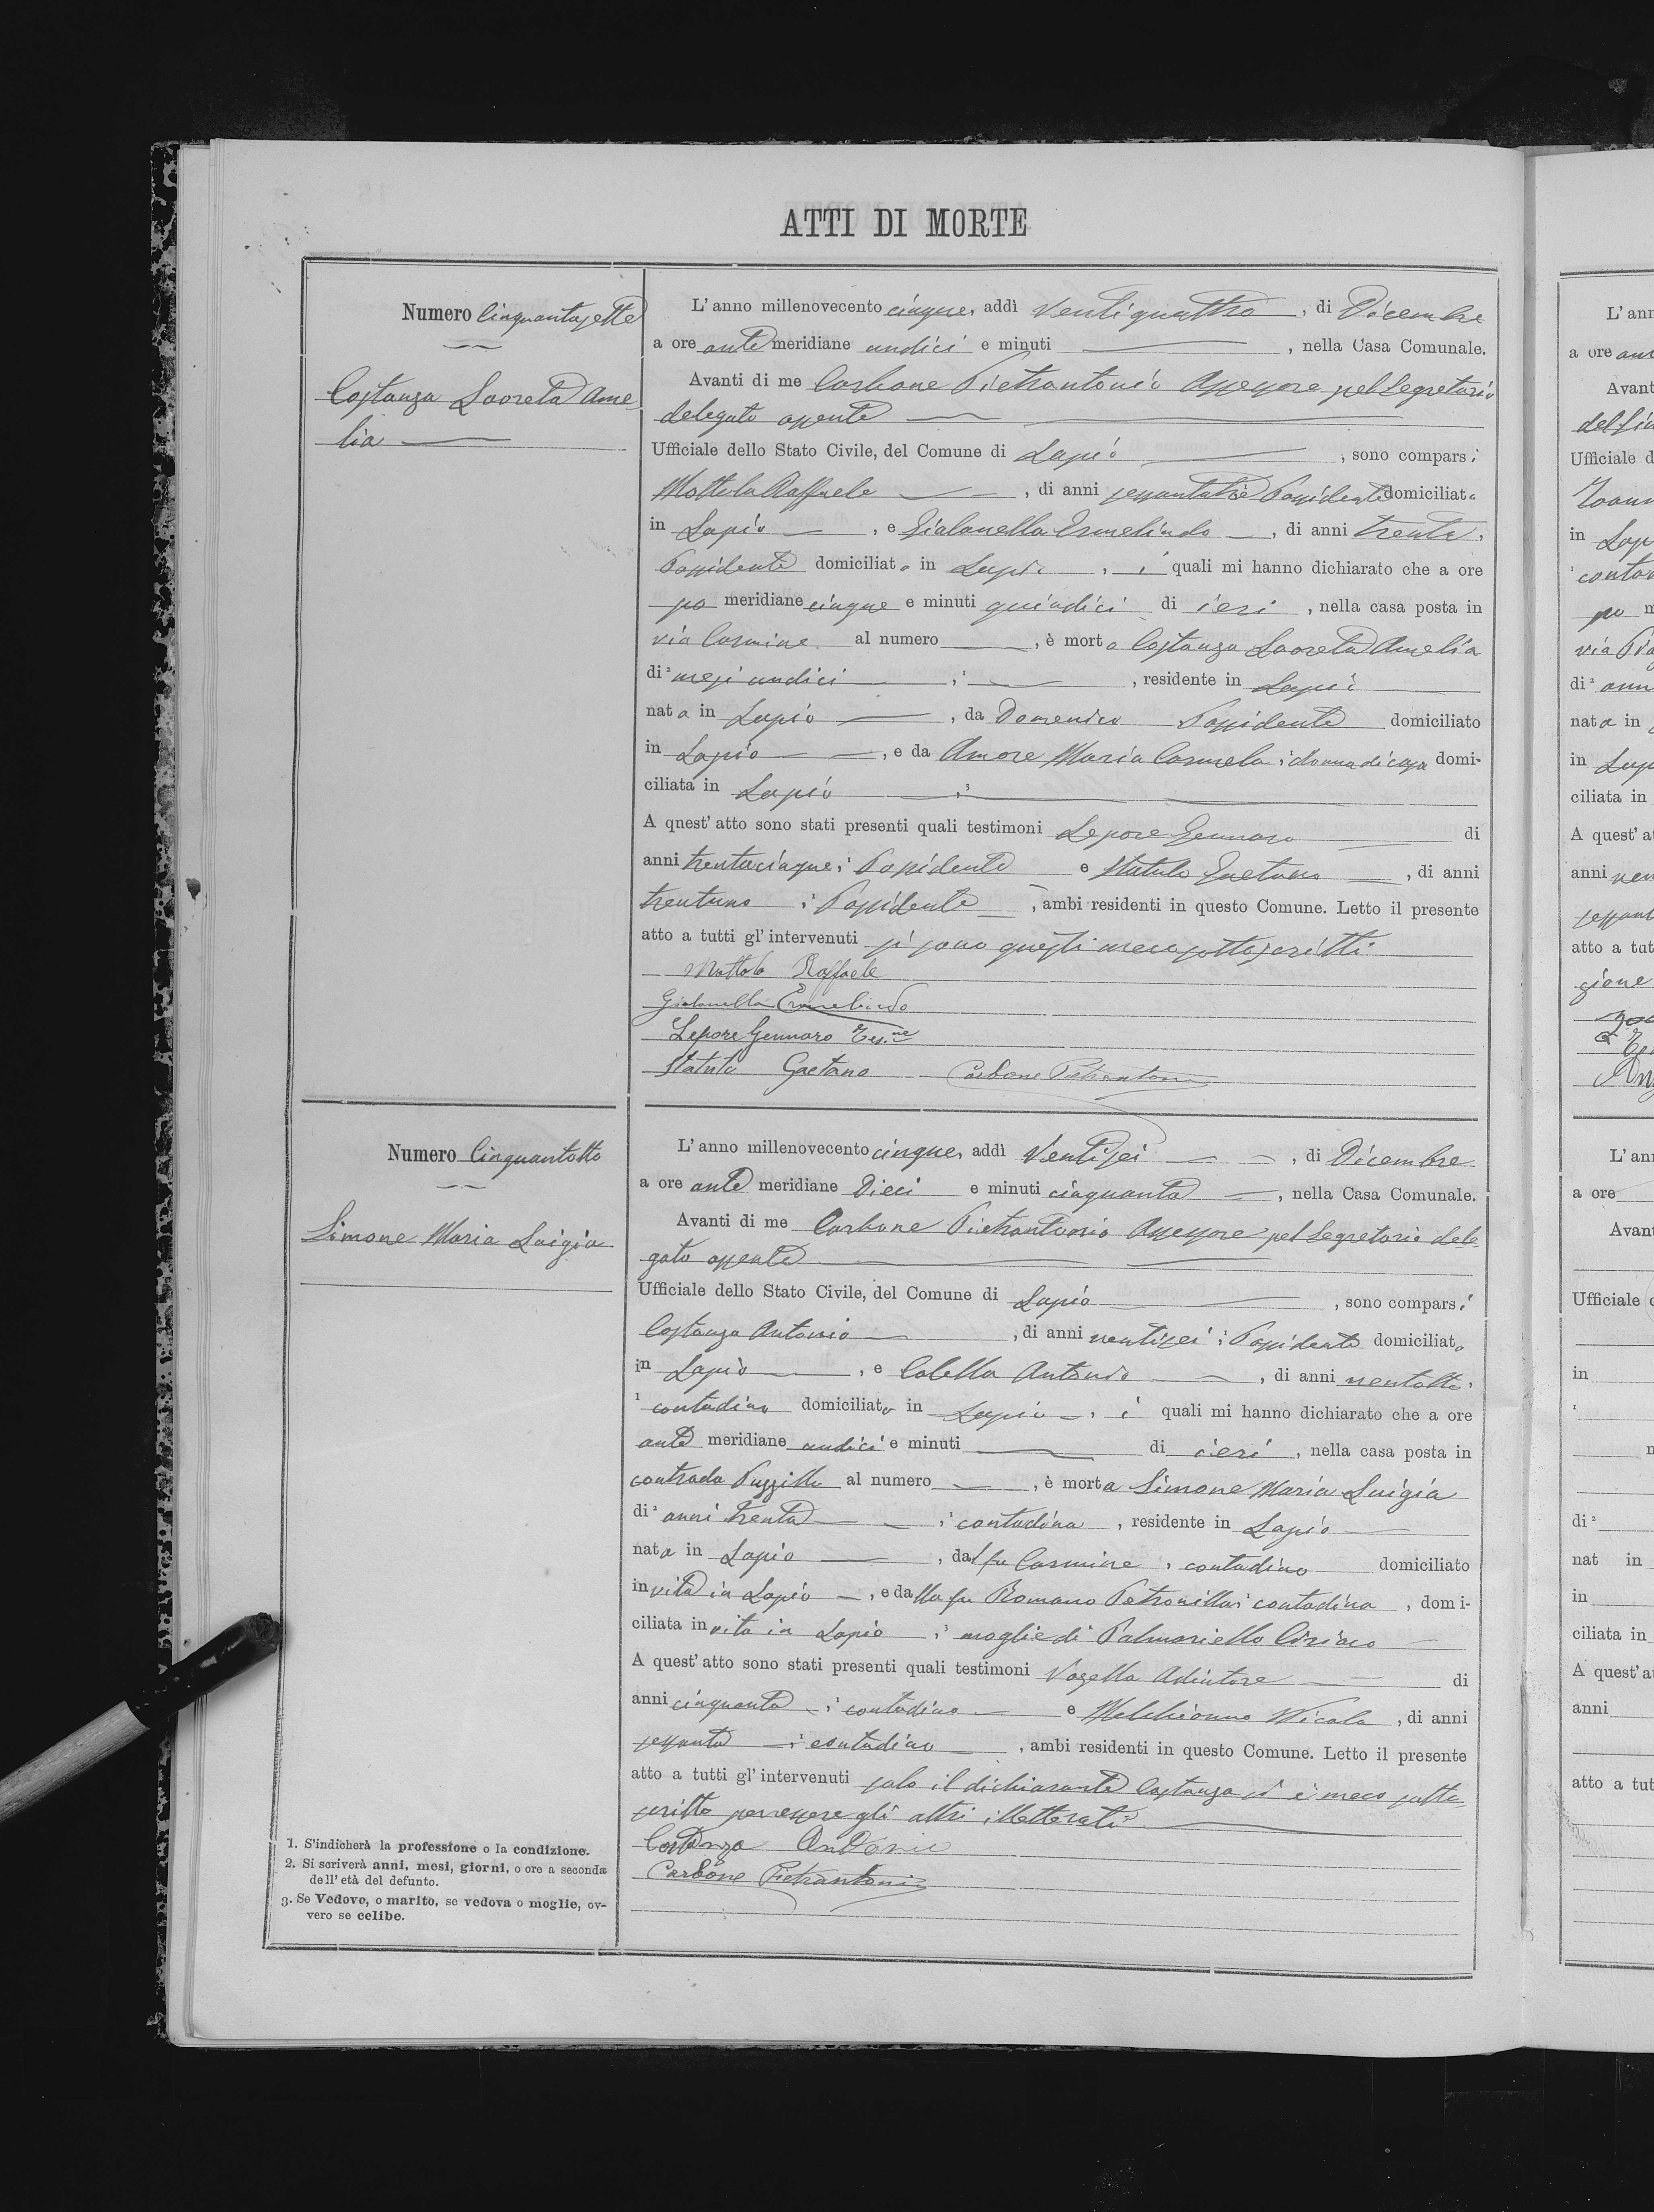 ATTI DI MORTE
Numero Cinquantasette
Costanza Loreta Ame-
lia
L'anno millenovecento cinque, addì Ventiquattro, di Dicembre
a ore ante meridiane undici e minuti , nella Casa Comunale.
Avanti di me Carbone Pietrantonio Assessore pel Segretario
delegato assente
Ufficiale dello Stato Civile, del Comune di Lapio , sono comparsi
Mottola Raffaele , di anni sessantatrè Possidente domiciliato
in Lapio , e Gialanella Ermelindo , di anni trenta,
Possidente domiciliato in Lapio , i quali mi hanno dichiarato che a ore
po meridiane cinque e minuti quindici di ieri , nella casa posta in
via Carmine al numero , è morta Costanza Loreta Amelia
di ² mesi undici , ¹ , residente in Lapio
nata in Lapio , da Domenico Possidente domiciliato
in Lapio , e da Amore Maria Carmela ; donna di casa domi-
ciliata in Lapio , ³
A quest' atto sono stati presenti quali testimoni Lepore Gennaro di
anni trentacinque, ¹ Possidente e Statuto Gaetano , di anni
trentuno , ¹ Possidente , ambi residenti in questo Comune. Letto il presente
atto a tutti gl' intervenuti si sono questi meco sottoscritti
Mottola Raffaele
Gialanella Ermelindo
Lepore Gennaro Tes.ne
Statuto Gaetano Carbone Pietrantonio
Numero Cinquantotto
Simone Maria Luigia
L'anno millenovecento cinque, addì Ventisei , di Dicembre
a ore ante meridiane Dieci e minuti cinquanta , nella Casa Comunale.
Avanti di me Carbone Pietrantonio Assessore pel Segretario dele
gato assente
Ufficiale dello Stato Civile, del Comune di Lapio , sono comparsi
Costanza Antonio , di anni ventisei ; Possidente domiciliato
in Lapio , e Colella Antonio , di anni ventotto,
¹ contadino domiciliato in Lapio , i quali mi hanno dichiarato che a ore
ante meridiane undici e minuti di ieri , nella casa posta in
contrada Puzzillo al numero , è morta Simone Maria Luigia
di ² anni trenta , ¹ contadina , residente in Lapio
nata in Lapio , dal fu Carmine , contadino domiciliato
in vita in Lapio , e dalla fu Romano Petronilla ; contadina , domi-
ciliata in vita in Lapio , ³ moglie di Palmariello Ciriaco
A quest' atto sono stati presenti quali testimoni Vozella Adiutore di
anni cinquanta , ¹ contadino e Melchionno Nicola , di anni
sessanta , ¹ contadino , ambi residenti in questo Comune. Letto il presente
atto a tutti gl' intervenuti solo il dichiarante Costanza si è meco sotto
scritto per essere gli altri illetterati
Costanza Antonio
Carbone Pietrantonio
1. S'indicherà la professione o la condizione.
2. Si scriverà anni, mesi, giorni, o ore a seconda
dell' età del defunto.
3. Se Vedovo, o marito, se vedova o moglie, ov-
vero se celibe.
L'ann
a ore
Avant
Ufficiale d
in Lap
di ² ann
nata in
in Lap
ciliata in
A quest' a
anni
atto a tut
L'ann
a ore
Avant
Ufficiale
in
di ²
nat in
in
ciliata in
A quest' a
anni
atto a tut